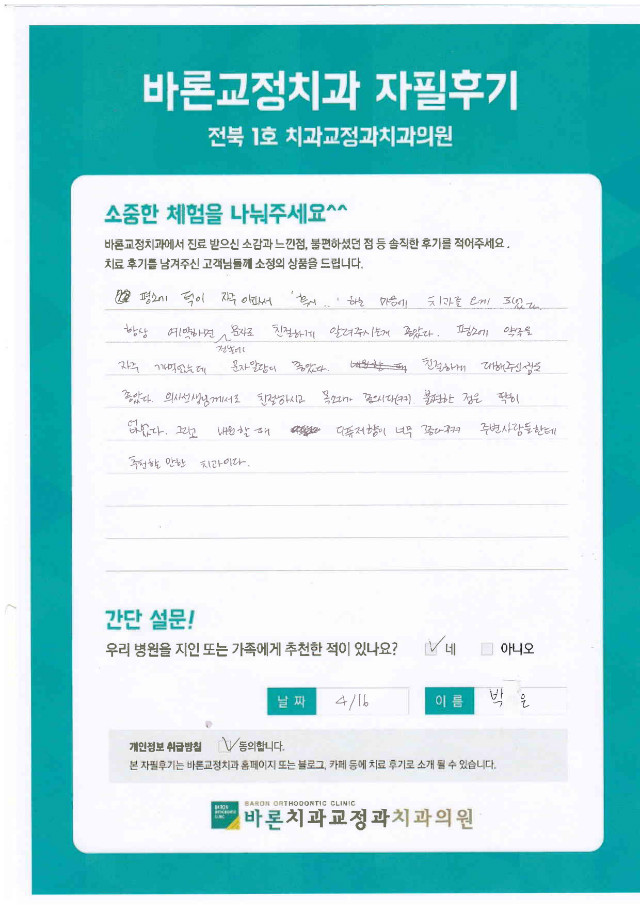 바론교정치과 자필후기
전북 1호 치과교정과치과의원
소중한 체험을 나눠주세요^^
바론교정치과에서 진료 받으신 소감과 느낀점, 불편하셨던 점 등 솔직한 후기를 적어주세요.
치료 후기를 남겨주신 고객님들께 소정의 상품을 드립니다.
평소에 턱이 자주 아파서 '혹시..' 하는 마음에 치과를 오게 되었는데
항상 예약하면 문자로 친절하게 알려주시는게 좋았다. 평소에 약속을
자주 까먹었는데 전날에 문자알림이 좋았다. 친절하게 대해주신점도
좋았다. 의사선생님께서도 친절하시고 목소리가 좋으시다(ㅋㅋ) 불편한 점은 딱히
없었다. 그리고 내원할 때 디퓨저향이 너무 좋다ㅋㅋ 주변사람들한테
추천할 만한 치과이다.
간단 설문!
우리 병원을 지인 또는 가족에게 추천한 적이 있나요? 네 아니오
날 짜 4/16 이 름 박 은
개인정보 취급방침 동의합니다.
본 자필후기는 바론교정치과 홈페이지 또는 블로그, 카페 등에 치료 후기로 소개 될 수 있습니다.
BARON ORTHODONTIC CLINIC
바론치과교정과치과의원